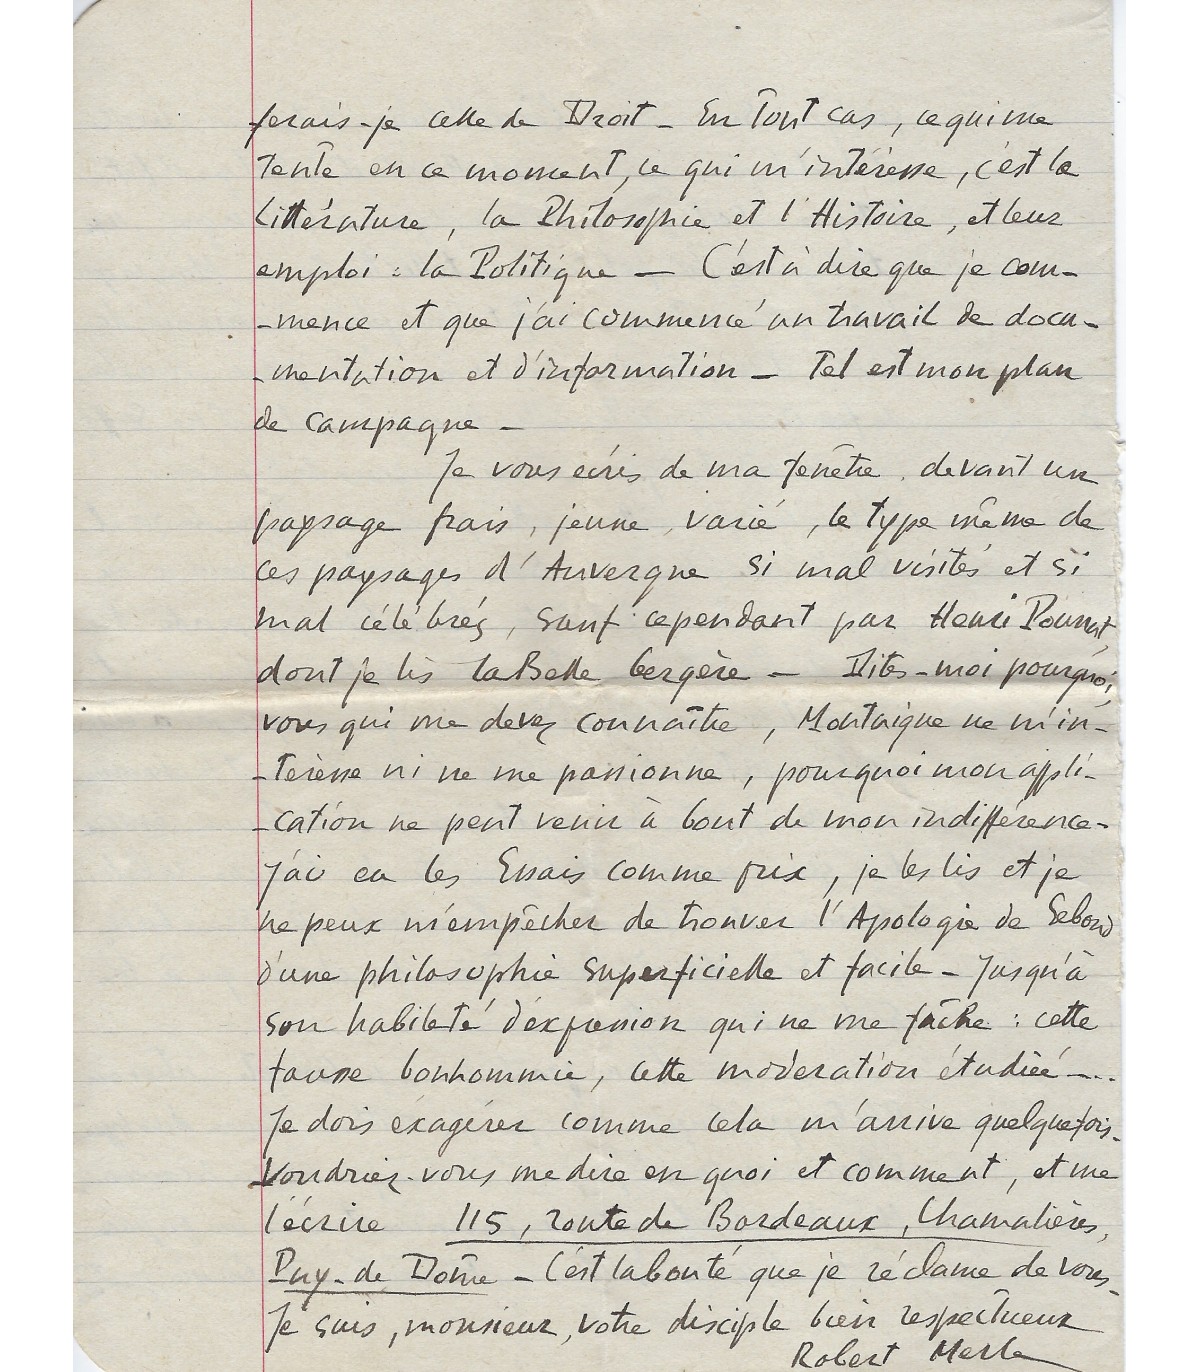 ferais-je celle de Droit - En Tout cas, ce qui me
tente en ce moment, ce qui m'intéresse, c'est la
Littérature, la Philosophie et l'Histoire, et leur
emploi : la Politique — C'est à dire que je com-
-mence et que j'ai commencé un travail de docu-
-mentation et d'information - Tel est mon plan
de campagne -
Je vous écris de ma fenêtre, devant un
paysage frais, jeune, varié, le type même de
ces paysages d'Auvergne si mal visités et si
mal célébrés, sauf cependant par Henri Pourrat
dont je lis la Belle bergère - Dites-moi pourquoi,
vous qui me devez connaître, Montaigne ne m'in-
-téresse ni ne me passionne, pourquoi mon appli-
-cation ne peut venir à bout de mon indifférence -
J'ai eu les Essais comme prix, je les lis et je
ne peux m'empêcher de trouver l'Apologie de Sebond
d'une philosophie superficielle et facile - Jusqu'à
son habileté d'expression qui ne me fâche : cette
fausse bonhommie, cette modération étudiée -...
Je dois exagérer comme cela m'arrive quelquefois -
Voudriez-vous me dire en quoi et comment, et me
l'écrire 115, route de Bordeaux, Chamalières,
Puy-de Dôme - C'est la bonté que je réclame de vous -
Je suis, monsieur, votre disciple bien respectueux
Robert Merle